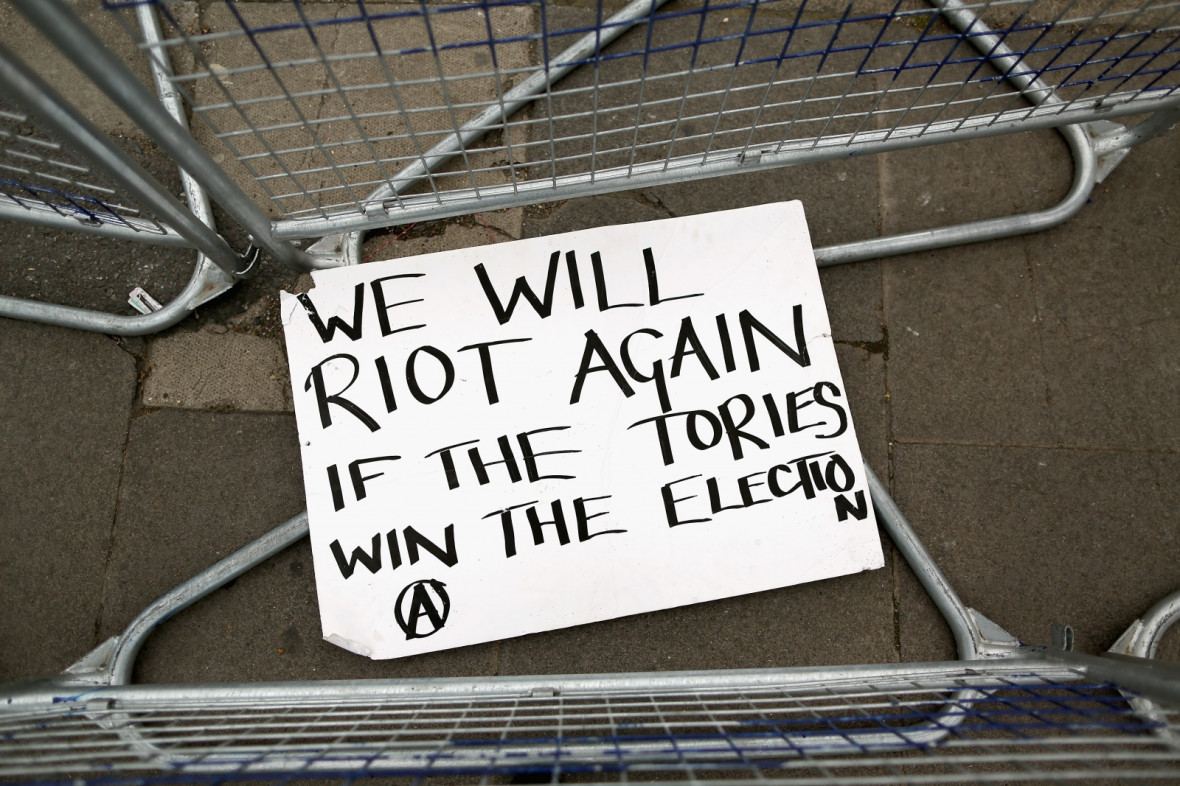 WE WILL
RIOT AGAIN
IF THE TORIES
WIN THE ELECTIO
N
Ⓐ